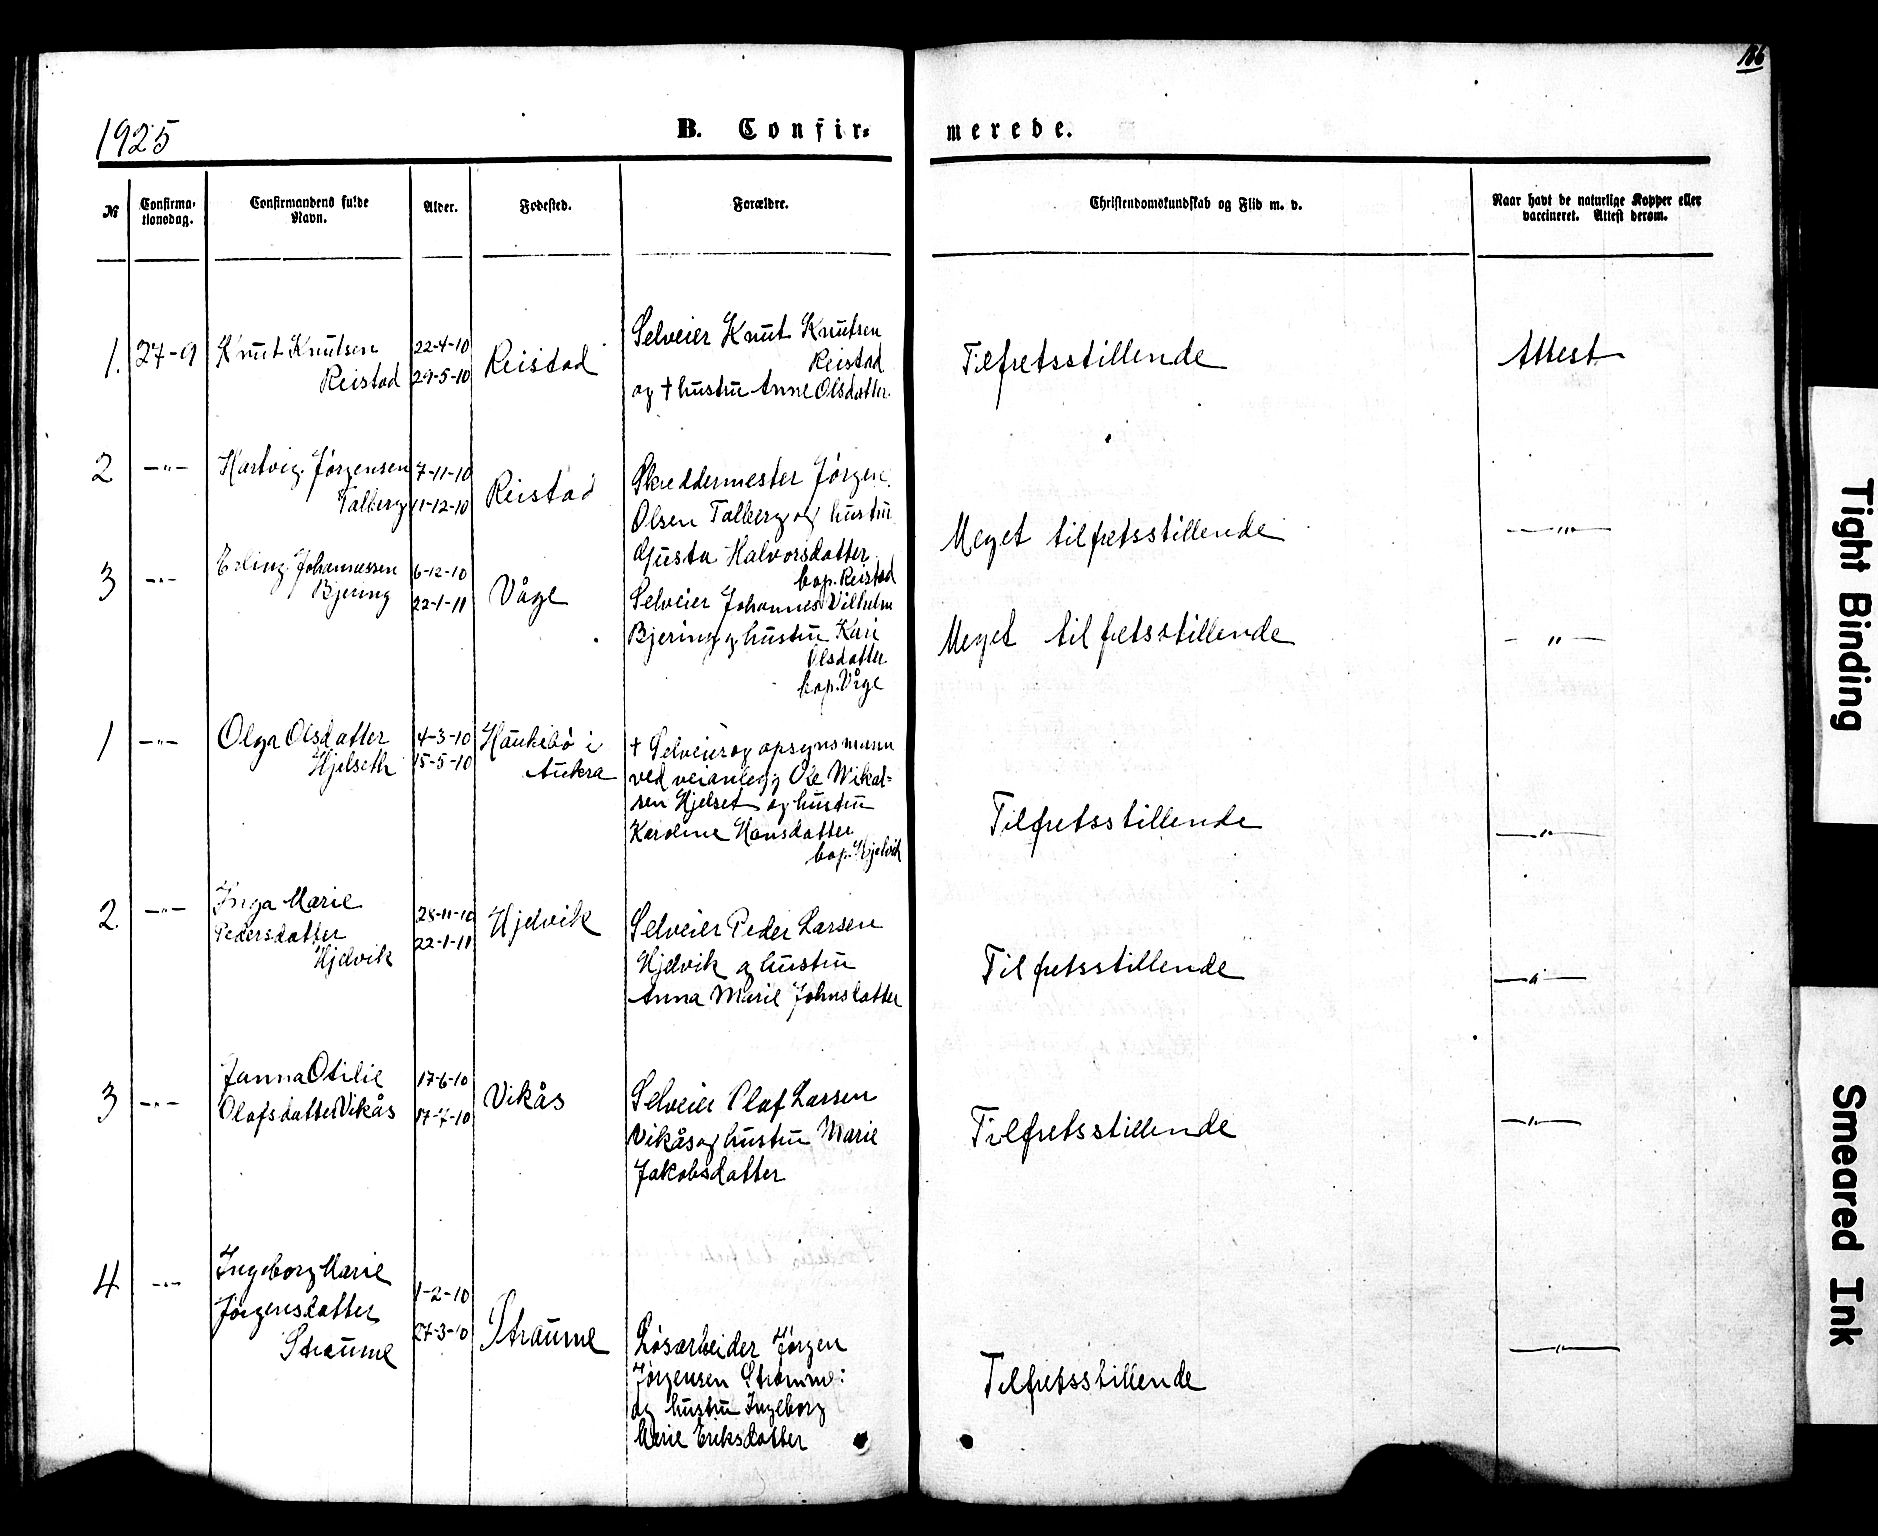 166
1925
B. Confir-
merede.
№
Confirma-
tionsdag.
Confirmandens fulde
Navn.
Alder.
Fødested.
Forældre.
Christendomskundskab og Flid m. v.
Naar havt de naturlige Kopper eller
vaccineret. Attest derom.
1. 27-9 Knut Knutsen
Reistad
22-4-10
29-5-10
Reistad
Selveier Knut Knutsen
Reistad
og † hustru Anne Olsdatter.
Tilfretsstillende
Attest
2 —"— Hartvig Jørgensen
Talberg
7-11-10
11-12-10
Reistad
Skreddermester Jörgen
Olsen Talberg og hustru
Gusta Halvorsdatter
bop. Reistad
Meget tilfretsstillende
—"—
3 —"— Erling Johannessen
Bjering
6-12-10
22-1-11
Våge
Selveier Johannes Vilhelm
Bjering og hustru Kari
Olsdatter
bop. Våge
Meget tilfretsstillende
—"—
1 —"— Olga Olsdatter
Hjelseth
4-3-10
15-5-10
Haukebø i
Aukra
† Selveier og opsynsmann
ved veianlegg Ole Mikal=
sen Hjelset og hustru
Karoline Hansdatter
bop. Hjelvik
Tilfretsstillende
—"—
2 —"— Inga Marie
Pedersdatter
Hjelvik
28-11-10
22-1-11
Hjelvik
Selveier Peder Larsen
Hjelvik og hustru
Anna Marie Johnsdatter
Tilfretsstillende
—"—
3 —"— Janna Otilie
Olafsdatter Vikås
17-6-10
17-7-10
Vikås
Selveier Olaf Larsen
Vikås og hustru Marie
Jakobsdatter
Tilfretsstillende
—"—
4 —"— Ingeborg Marie
Jörgensdatter
Straume
1-2-10
27-3-10
Straume
Løsarbeider Jørgen
Jørgensen Straume:
og hustru Ingeborg
Marie Eriksdatter
Tilfretsstillende
—"—
Tight Binding
Smeared Ink